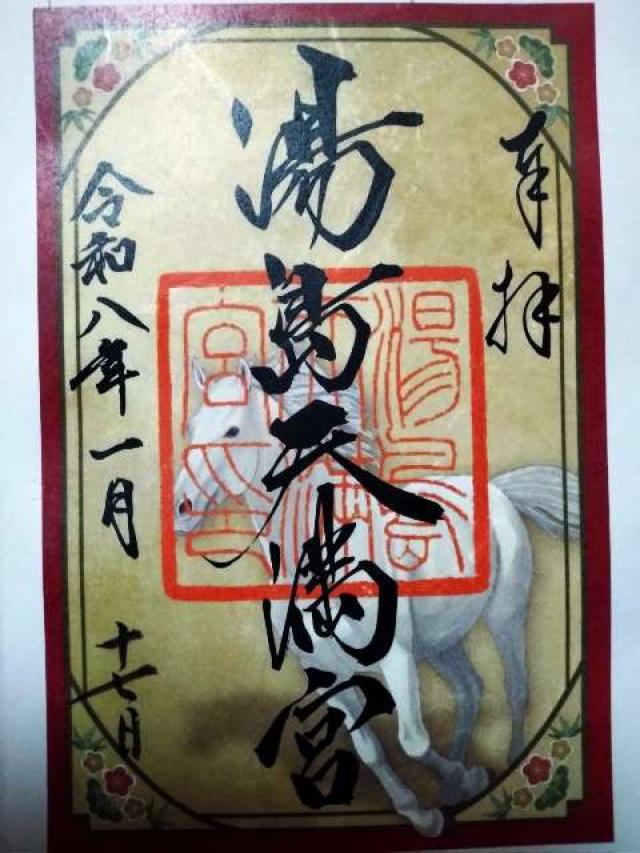 奉拝
湯島天満宮
令和八年一月十七日
湯島
天満
宮之印